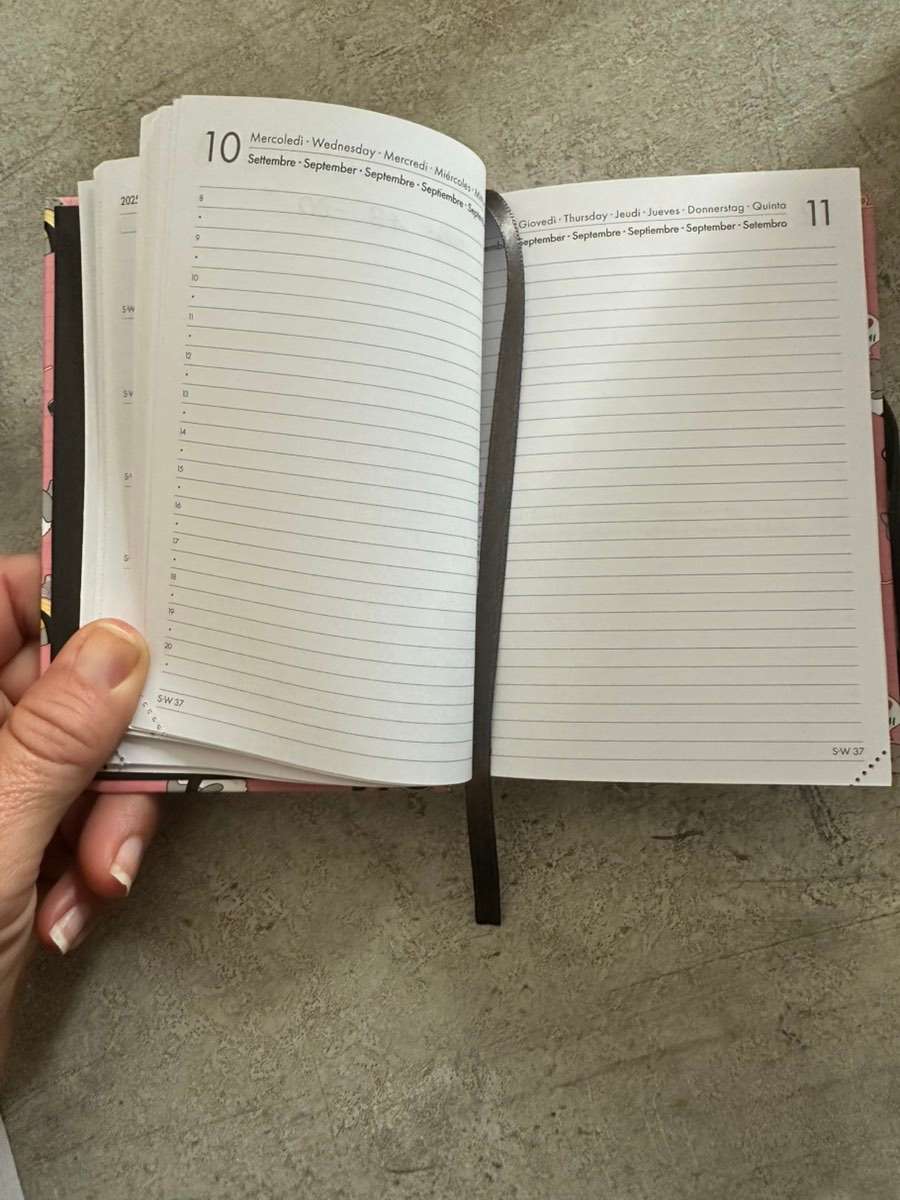 2025
S·W
S·W
10
Mercoledì · Wednesday · Mercredi · Miércoles
Settembre · September · Septembre · Septiembre
8
9
10
11
12
13
14
15
16
17
18
19
20
S·W 37
Giovedì · Thursday · Jeudi · Jueves · Donnerstag · Quinta
11
September · Septembre · Septiembre · September · Setembro
S·W 37